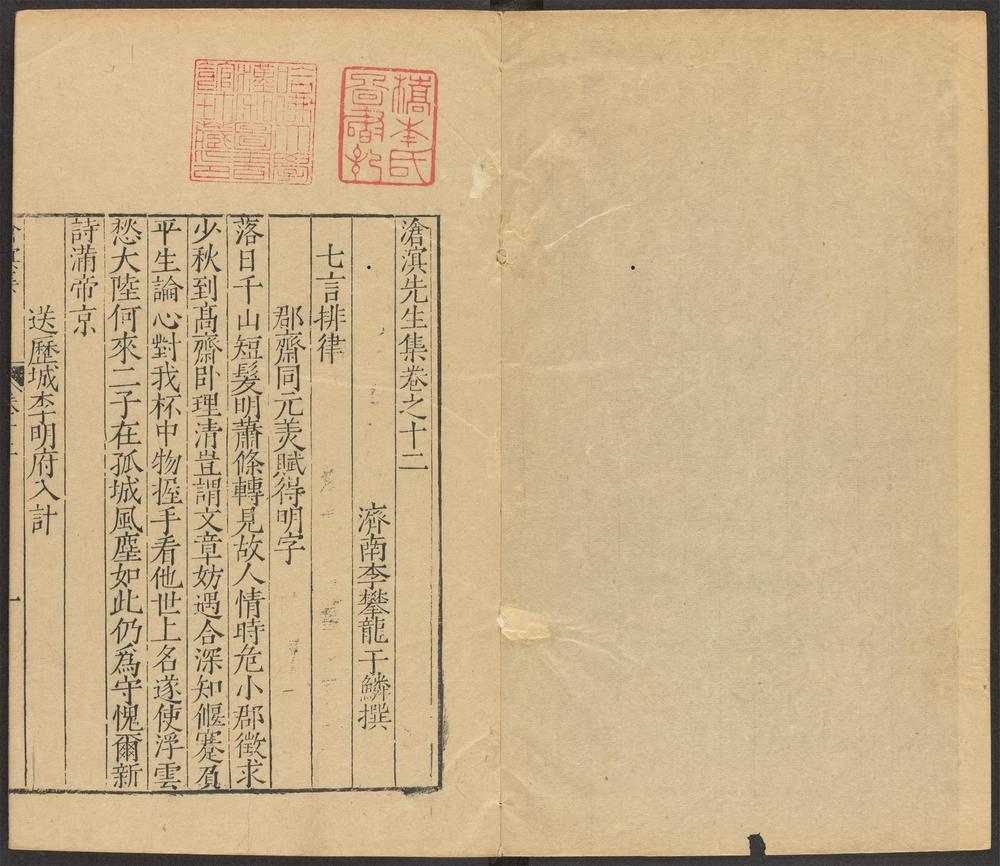 滄溟先生集卷之十二
濟南李攀龍于鱗撰
七言排律
郡齋同元美賦得明字
落日千山短髮明蕭條轉見故人情時危小郡徵求
少秋到髙齋卧理清豈謂文章妨遇合深知偃蹇負
平生論心對我杯中物握手看他世上名遂使浮雲
愁大陸何來二子在孤城風塵如此仍爲守愧爾新
詩滿帝京
送歷城李明府入計
一
橋本氏
哈佛大學
漢和圖書
館珍藏印